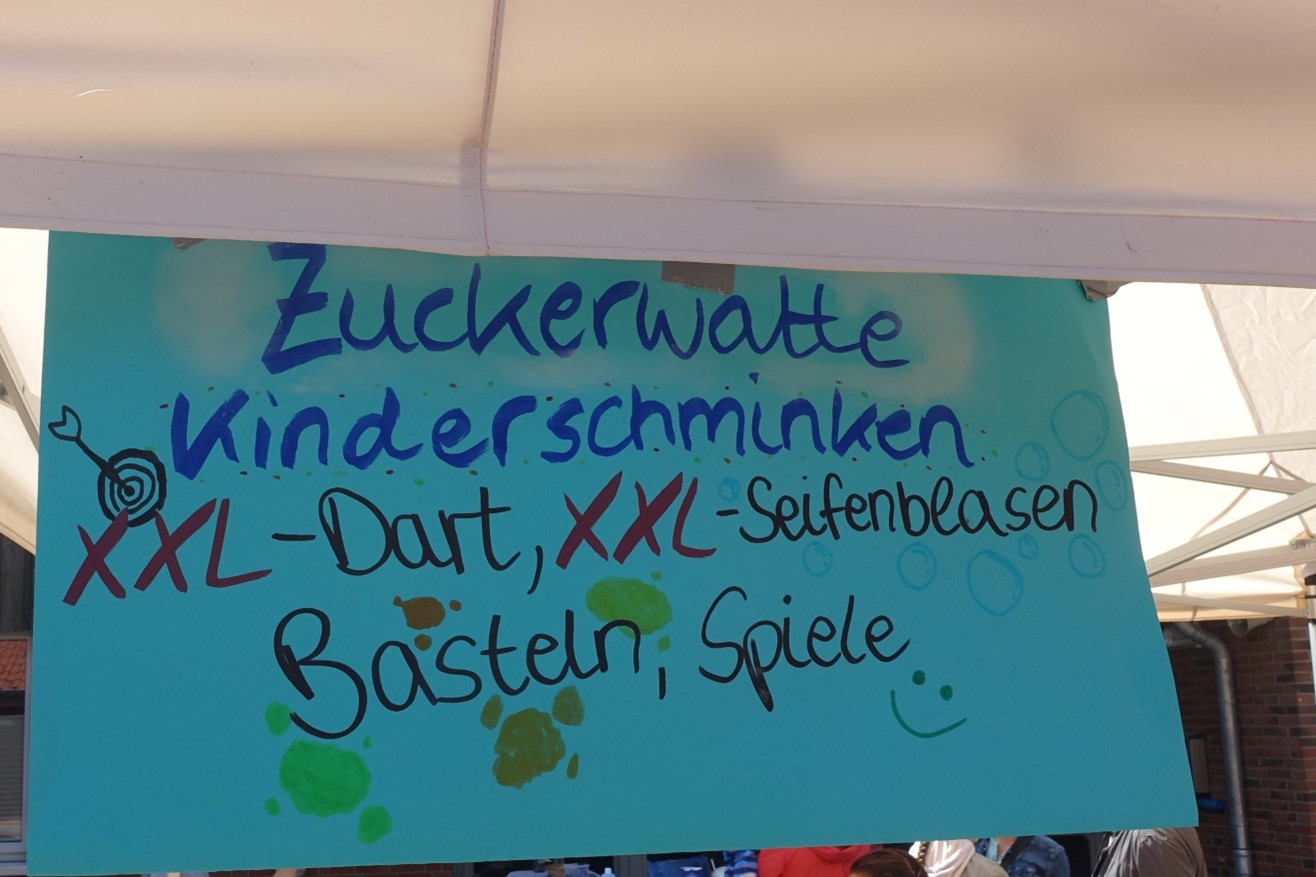 Zuckerwatte
Kinderschminken
XXL-Dart, XXL-Seifenblasen
Basteln, Spiele